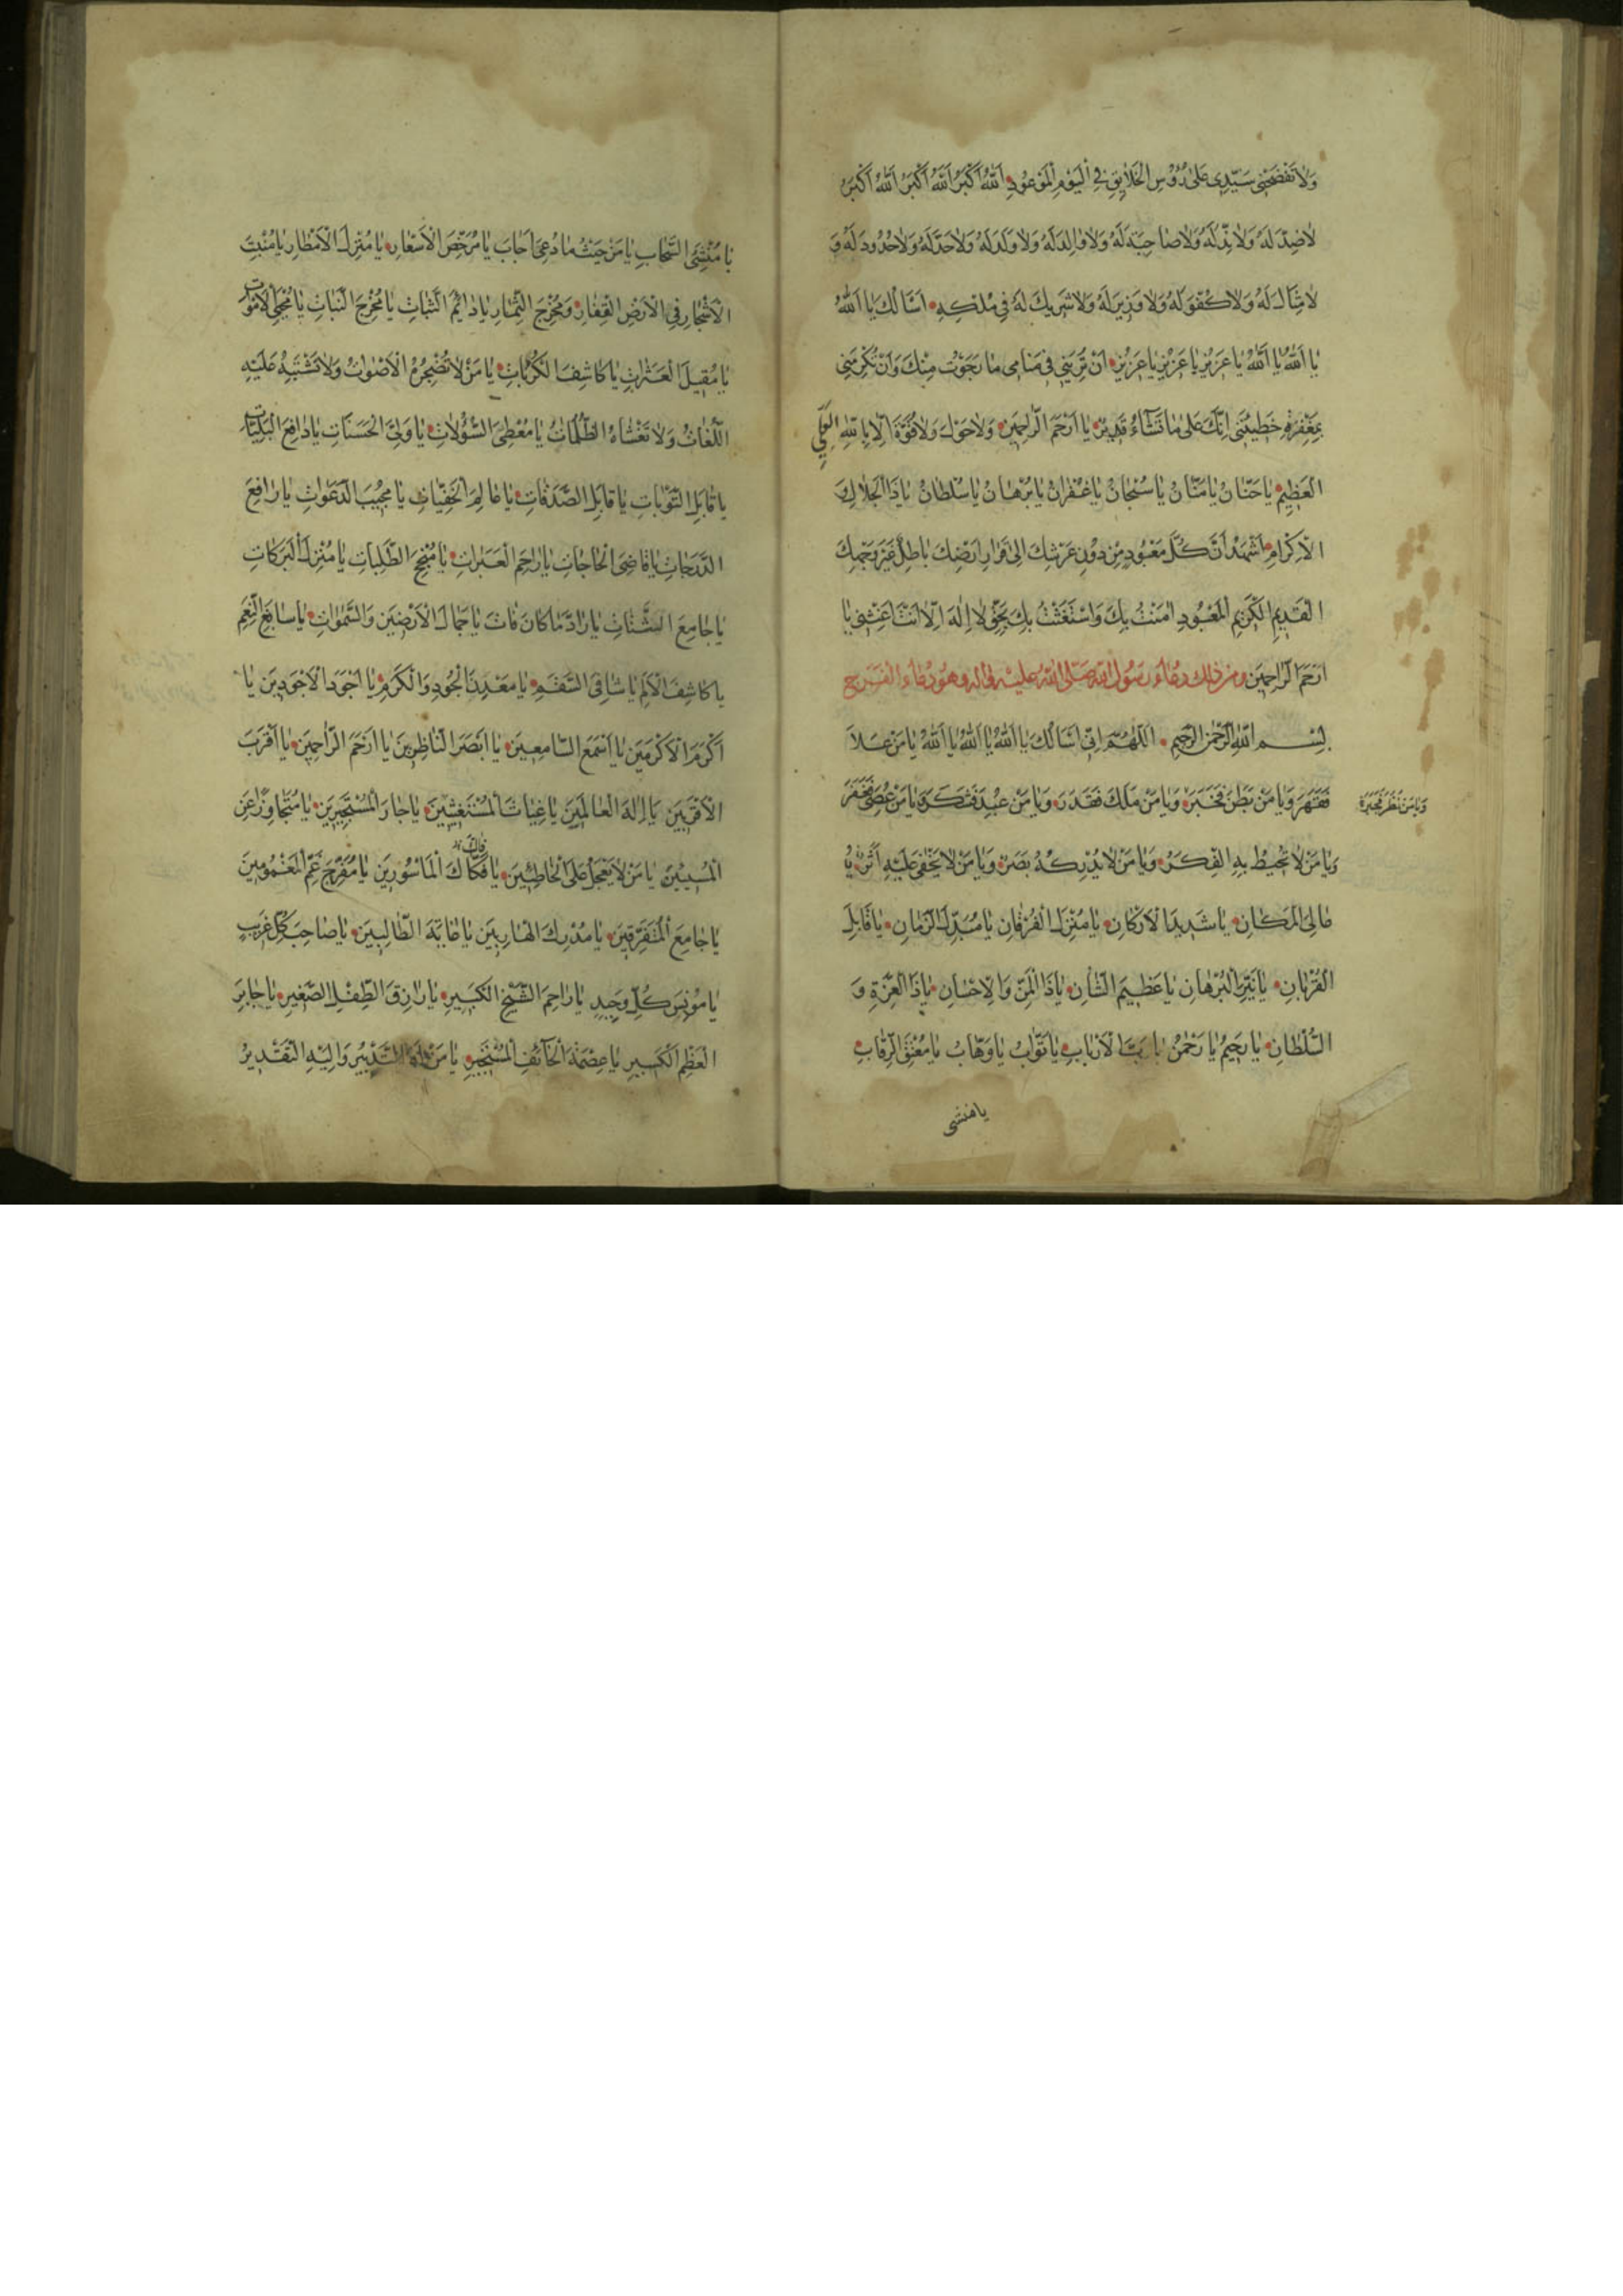 وَلَا تَفْضَحْنِي سَيِّدِي عَلَى رُؤُسِ الْخَلَايِقِ فِي الْيَوْمِ الْمَوْعُودِ اَللّٰهُ اَكْبَرُ اَللّٰهُ اَكْبَرُ اَللّٰهُ اَكْبَرُ
لَا ضِدَّ لَهُ وَلَا نِدَّ لَهُ وَلَا صَاحِبَةَ لَهُ وَلَا وَالِدَ لَهُ وَلَا وَلَدَ لَهُ وَلَا حَدَّ لَهُ وَلَا حُدُودَ لَهُ وَ
لَا مِثَالَ لَهُ وَلَا كُفْوَ لَهُ وَلَا وَزِيرَ لَهُ وَلَا شَرِيكَ لَهُ فِي مُلْكِهِ اَسْاَلُكَ يَا اَللّٰهُ
يَا اَللّٰهُ يَا اَللّٰهُ يَا عَزِيزُ يَا عَزِيزُ يَا عَزِيزُ اَنْ تُرِيَنِي فِي مَنَامِي مَا رَجَوْتُ مِنْكَ وَاَنْ تُكْرِمَنِي
بِمَغْفِرَةِ خَطِيئَتِي اِنَّكَ عَلَى مَا تَشَاءُ قَدِيرٌ يَا اَرْحَمَ الرَّاحِمِينَ وَلَا حَوْلَ وَلَا قُوَّةَ اِلَّا بِاللّٰهِ الْعَلِيِّ
الْعَظِيمِ يَا حَنَّانُ يَا مَنَّانُ يَا سُبْحَانُ يَا غُفْرَانُ يَا بُرْهَانُ يَا سُلْطَانُ يَا ذَا الْجَلَالِ وَ
الْاِكْرَامِ اَشْهَدُ اَنَّ كُلَّ مَعْبُودٍ مِنْ دُونِ عَرْشِكَ اِلَى قَرَارِ اَرْضِكَ بَاطِلٌ غَيْرَ وَجْهِكَ
الْقَدِيمِ الْكَرِيمِ الْمَعْبُودِ اٰمَنْتُ بِكَ وَاسْتَغَثْتُ بِكَ بِحَقِّ لَا اِلٰهَ اِلَّا اَنْتَ اَغِثْنِي يَا
اَرْحَمَ الرَّاحِمِينَ ومن ذلك دعاء رسول الله صلى الله عليه واله وهو دعاء الفرج
بِسْمِ اللّٰهِ الرَّحْمٰنِ الرَّحِيمِ اَللّٰهُمَّ اِنِّي اَسْاَلُكَ يَا اَللّٰهُ يَا اَللّٰهُ يَا اَللّٰهُ يَا مَنْ عَلَا
فَقَهَرَ وَيَا مَنْ بَطَنَ فَخَبَرَ وَيَا مَنْ مَلَكَ فَقَدَرَ وَيَا مَنْ عُبِدَ فَشَكَرَ وَيَا مَنْ عُصِيَ فَغَفَرَ
وَيَا مَنْ لَا تُحِيطُ بِهِ الْفِكَرُ وَيَا مَنْ لَا يُدْرِكُهُ بَصَرٌ وَيَا مَنْ لَا يَخْفَى عَلَيْهِ اَثَرٌ يَا
عَالِيَ الْمَكَانِ يَا شَدِيدَ الْاَرْكَانِ يَا مُنْزِلَ الْفُرْقَانِ يَا مُبَدِّلَ الزَّمَانِ يَا قَابِلَ
الْقُرْبَانِ يَا نَيِّرَ الْبُرْهَانِ يَا عَظِيمَ الشَّانِ يَا ذَا الْمَنِّ وَالْاِحْسَانِ يَا ذَا الْعِزَّةِ وَ
السُّلْطَانِ يَا رَحِيمُ يَا رَحْمٰنُ يَا رَبَّ الْاَرْبَابِ يَا تَوَّابُ يَا وَهَّابُ يَا مُعْتِقَ الرِّقَابِ
يا منشى
يَا مُنْشِئَ السَّحَابِ يَا مَنْ حَيْثُ مَا دُعِيَ اَجَابَ يَا مُرَخِّصَ الْاَسْعَارِ يَا مُنْزِلَ الْاَمْطَارِ يَا مُنْبِتَ
الْاَشْجَارِ فِي الْاَرْضِ الْقِفَارِ وَمُخْرِجَ الثِّمَارِ يَا دَائِمَ الثَّبَاتِ يَا مُخْرِجَ النَّبَاتِ يَا مُحْيِيَ الْاَمْوَاتِ
يَا مُقِيلَ الْعَثَرَاتِ يَا كَاشِفَ الْكُرُبَاتِ يَا مَنْ لَا تُضْجِرُهُ الْاَصْوَاتُ وَلَا تَشْتَبِهُ عَلَيْهِ
اللُّغَاتُ وَلَا تَغْشَاهُ الظُّلُمَاتُ يَا مُعْطِيَ السُّؤُلَاتِ يَا وَلِيَّ الْحَسَنَاتِ يَا دَافِعَ الْبَلِيَّاتِ
يَا قَابِلَ التَّوْبَاتِ يَا قَابِلَ الصَّدَقَاتِ يَا عَالِمَ الْخَفِيَّاتِ يَا مُجِيبَ الدَّعَوَاتِ يَا رَافِعَ
الدَّرَجَاتِ يَا قَاضِيَ الْحَاجَاتِ يَا رَاحِمَ الْعَبَرَاتِ يَا مُنْجِحَ الطَّلِبَاتِ يَا مُنْزِلَ الْبَرَكَاتِ
يَا جَامِعَ الشَّتَاتِ يَا رَادَّ مَا كَانَ فَاتَ يَا جَمَالَ الْاَرَضِينَ وَالسَّمٰوَاتِ يَا سَابِغَ النِّعَمِ
يَا كَاشِفَ الْاَلَمِ يَا شَافِيَ السَّقَمِ يَا مَعْدِنَ الْجُودِ وَالْكَرَمِ يَا اَجْوَدَ الْاَجْوَدِينَ يَا
اَكْرَمَ الْاَكْرَمِينَ يَا اَسْمَعَ السَّامِعِينَ يَا اَبْصَرَ النَّاظِرِينَ يَا اَرْحَمَ الرَّاحِمِينَ يَا اَقْرَبَ
الْاَقْرَبِينَ يَا اِلٰهَ الْعَالَمِينَ يَا غِيَاثَ الْمُسْتَغِيثِينَ يَا جَارَ الْمُسْتَجِيرِينَ يَا مُتَجَاوِزًا عَنِ
الْمُسِيئِينَ يَا مَنْ لَا يَعْجَلُ عَلَى الْخَاطِئِينَ يَا فَكَّاكَ الْمَاْسُورِينَ يَا مُفَرِّجَ غَمِّ الْمَغْمُومِينَ
يَا جَامِعَ الْمُتَفَرِّقِينَ يَا مُدْرِكَ الْهَارِبِينَ يَا غَايَةَ الطَّالِبِينَ يَا صَاحِبَ كُلِّ غَرِيبٍ
يَا مُونِسَ كُلِّ وَحِيدٍ يَا رَاحِمَ الشَّيْخِ الْكَبِيرِ يَا رَازِقَ الطِّفْلِ الصَّغِيرِ يَا جَابِرَ
الْعَظْمِ الْكَسِيرِ يَا عِصْمَةَ الْخَائِفِ الْمُسْتَجِيرِ يَا مَنْ لَهُ التَّدْبِيرُ وَاِلَيْهِ التَّقْدِيرُ